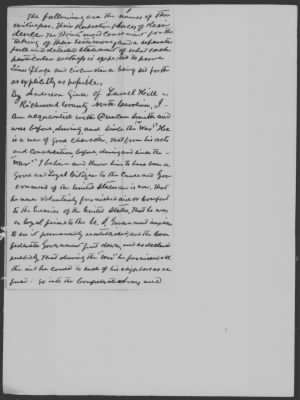 The following are the names of the
witnesses. Their Respective places of Resi-
dence. The most convenient for the
taking of their testimony, and a separate
full and detailed statement of what each
particular witness is expected to prove
time place and circumstance being set forth
as explicitly as possible.
By Anderson Quick of Laurel Hill
Richmond County North Carolina, I
am acquainted with Duncan Smith and
was before, during and since the "War" He
is a man of good character, that from his acts
and Conversation before, during and since the
"War" I believe and know him to have been a
Good and Loyal Citizen to the Cause and Gov-
ernment of the United States as is now, that
he never Voluntarily furnished aid or comfort
to the Enemies of the United States, that he was
a loyal friend to the U. S. Government
to see it permanently established, and the Con-
federate Government put down, and so declared
publicly, that during the "War" he furnished all
the aid he could to such of his neighbors as re-
fused to go into the Confederate Army, and